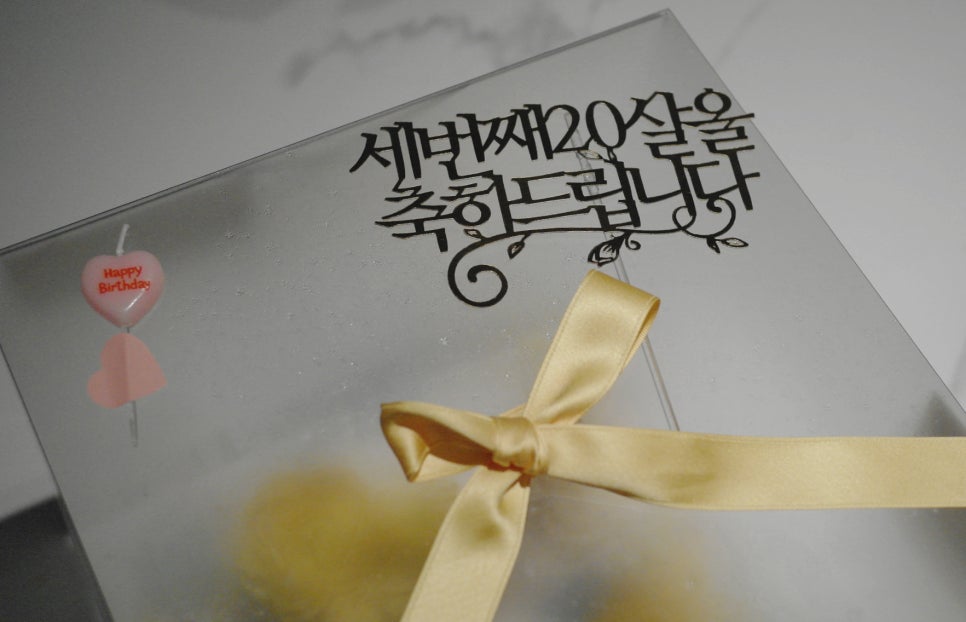 세번째20살을
축하드립니다
Happy
Birthday